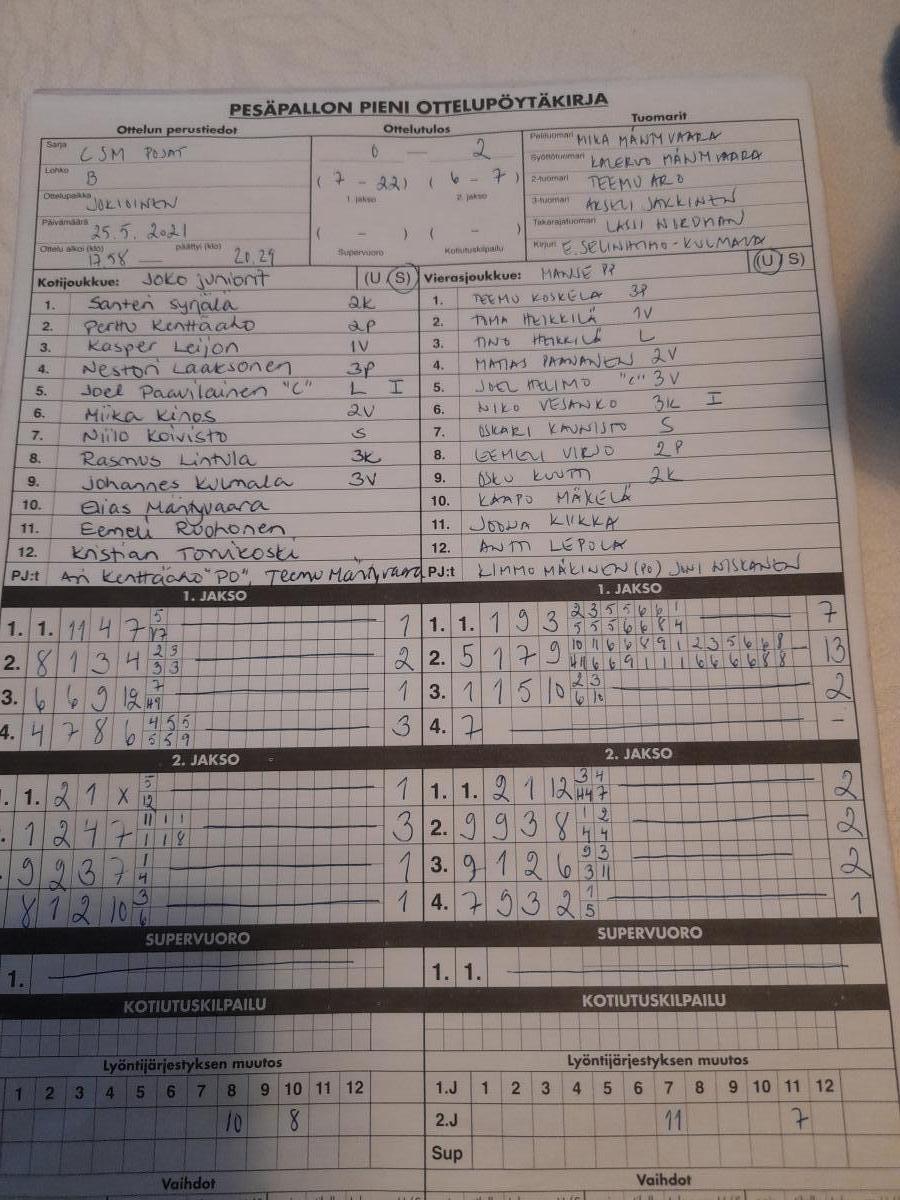 PESÄPALLON PIENI OTTELUPÖYTÄKIRJA
Ottelun perustiedot
Ottelutulos
Tuomarit
Sarja CSM POJAT
Lohko B
Ottelupaikka JOKIOINEN
Päivämäärä 25.5.2021
Ottelu alkoi (klo) 17.58 — päättyi (klo) 20.29
0 — 2
( 7 – 22 ) ( 6 – 7 )
1. jakso 2. jakso
( – ) ( – )
Supervuoro Kotiutuskilpailu
Pelituomari MIKA MÄNTYVAARA
Syöttötuomari KALERVO MÄNTYVAARA
2-tuomari TEEMU ARO
3-tuomari AKSELI JAKKINEN
Takarajatuomari LASSI NORDMAN
Kirjuri E. SELINHEIMO-KULMALA
Kotijoukkue: Joko juniorit (U S)
1. Santeri Syrjälä 2K
2. Perttu Kenttäaho 2P
3. Kasper Leijon 1V
4. Nestori Laaksonen 3P
5. Joel Paavilainen "C" L I
6. Miika Kinos 2V
7. Niilo Koivisto S
8. Rasmus Lintula 3K
9. Johannes Kulmala 3V
10. Elias Mäntyvaara
11. Eemeli Ruohonen
12. Kristian Tornikoski
PJ:t Ari Kenttäaho "PO", Teemu Mäntyvaara
Vierasjoukkue: MANSE PP (U S)
1. TEEMU KOSKELA 3P
2. TIMA HEIKKILÄ 1V
3. TINO HEIKKILÄ L
4. MATIAS PAANANEN 2V
5. JOEL HELIMO "C" 3V
6. NIKO VESANKO 3K I
7. OSKARI KAUNISTO S
8. EEMELI VIRJO 2P
9. OSKU KUUTTI 2K
10. KAAPO MÄKELÄ
11. JOONA KIIKKA
12. ANTTI LEPOLA
PJ:t KIMMO MÄKINEN (PO) JONI NISKANEN
1. JAKSO
1. 1. 11 4 7 5 17 1
2. 8 1 3 4 2 3 3 3 2
3. 6 6 9 12 7 H9 1
4. 4 7 8 6 4 5 5 5 5 9 3
1. JAKSO
1. 1. 1 9 3 2 3 5 5 6 6 1 5 5 5 6 6 8 4 7
2. 5 1 7 9 10 11 6 6 8 9 1 2 3 5 6 6 8 H11 6 6 9 1 1 1 6 6 6 6 8 8 13
3. 1 1 5 10 2 3 6 10 2
4. 7 –
2. JAKSO
1. 2 1 x 5 12 1
1 2 4 7 11 1 1 1 1 8 3
9 2 3 7 1 4 1
8 1 2 10 3 6 1
2. JAKSO
1. 1. 2 1 12 3 4 H4 7 2
2. 9 9 3 8 1 2 4 4 2
3. 9 1 2 6 9 3 3 11 2
4. 7 9 3 2 1 5 1
SUPERVUORO
1.
SUPERVUORO
1. 1.
KOTIUTUSKILPAILU
KOTIUTUSKILPAILU
Lyöntijärjestyksen muutos
1 2 3 4 5 6 7 8 9 10 11 12
10 8
Lyöntijärjestyksen muutos
1.J 1 2 3 4 5 6 7 8 9 10 11 12
2.J 11 7
Sup
Vaihdot
Vaihdot